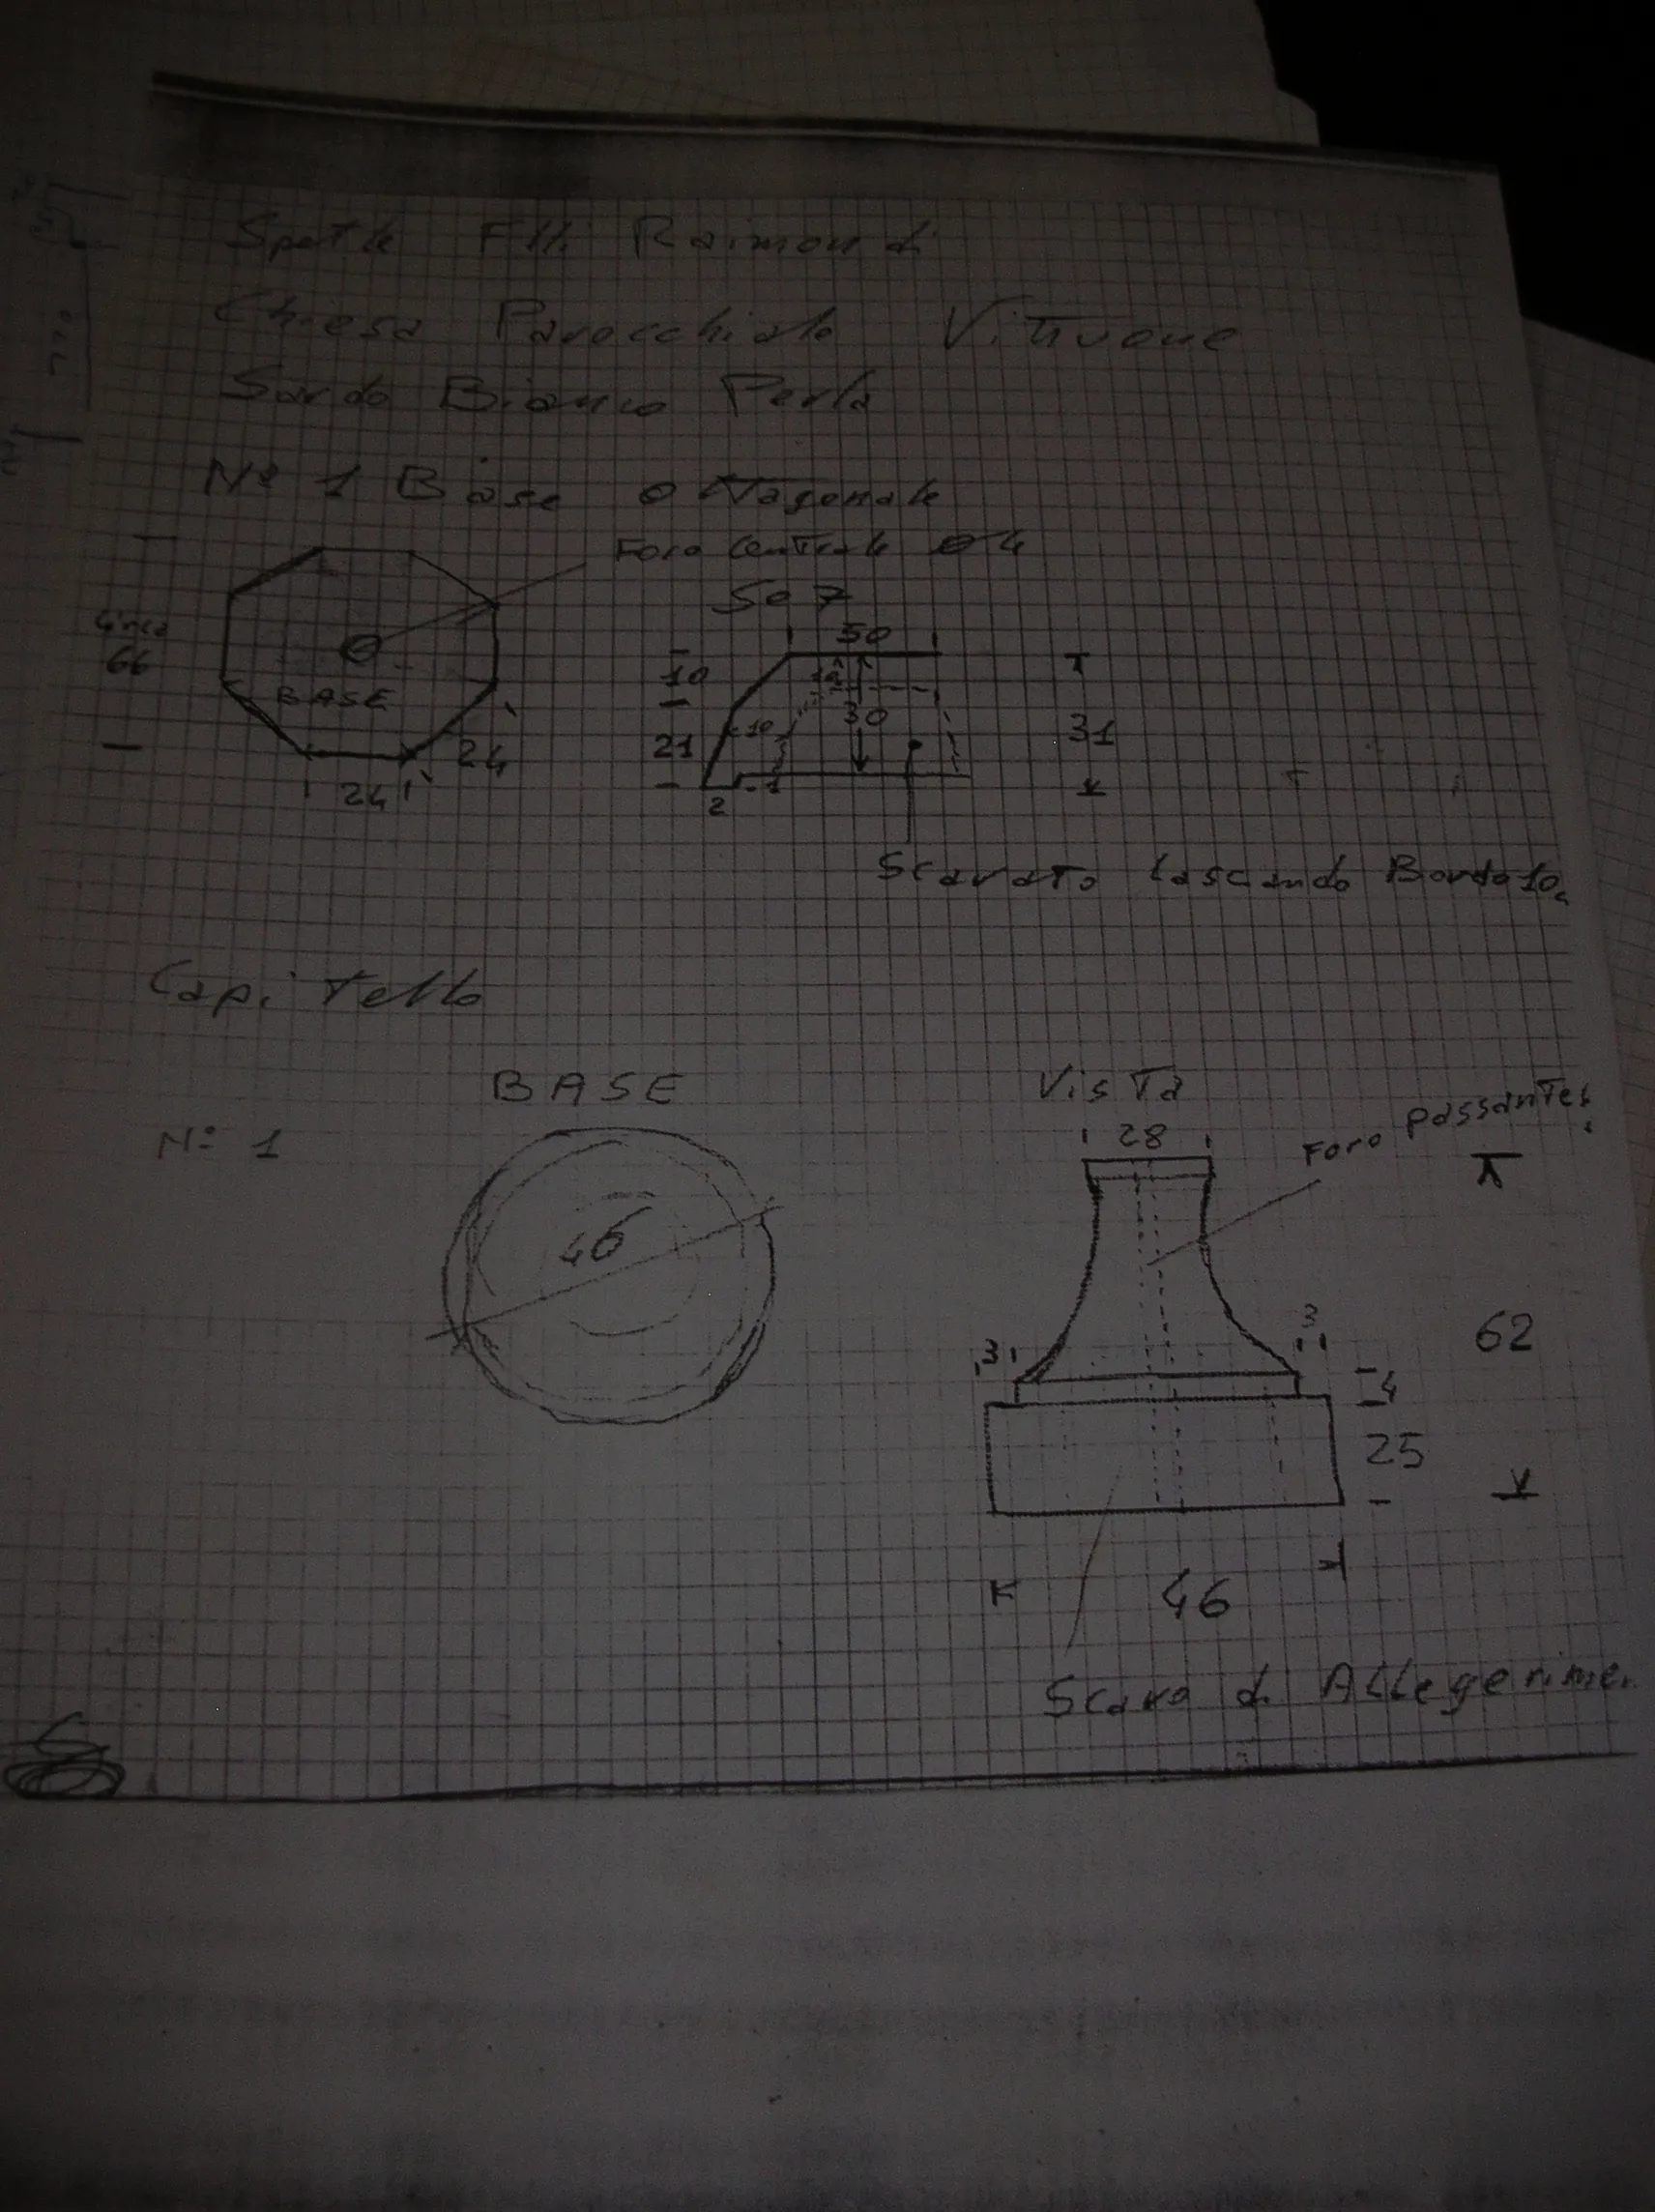 Spett le Flli Raimondi
Chiesa Parocchiale Vittuone
Sardo Bianco Perla
N° 1 Base Ottagonale
Foro Centrale ø 4
Circa
66
BASE
24
24
50
10
10
10
30
21
31
2
1
Scavato Lasciando Bordo 10
Capitello
BASE
Vista
N° 1
28
Foro passante
46
3
3
62
4
25
46
Scavo di Alleggerimen